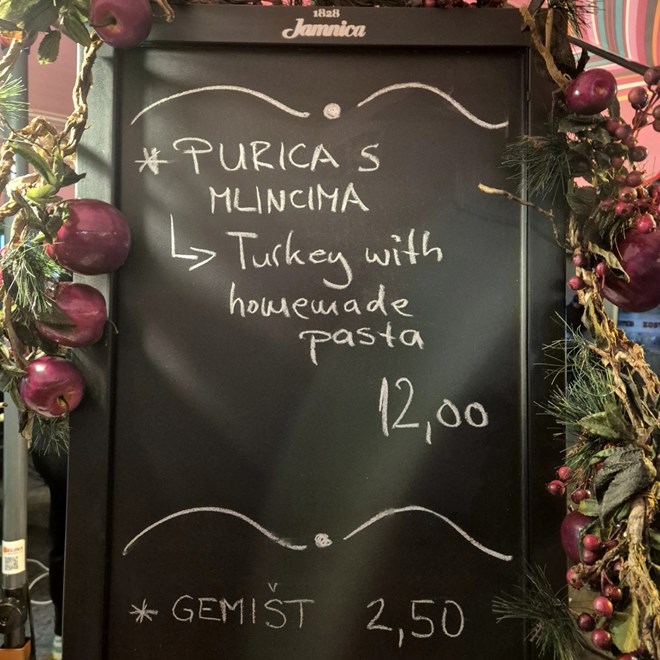 1828
Jamnica
* PURICA S
MLINCIMA
↳ Turkey with
homemade
pasta
12,00
* GEMIŠT 2,50